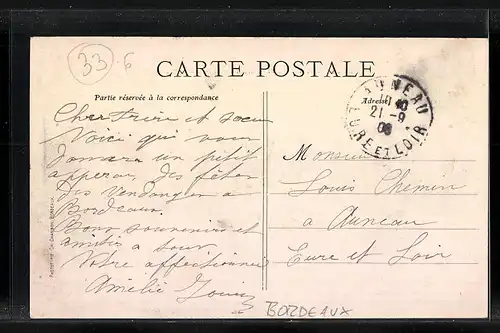 33 6
CARTE POSTALE
Partie réservée à la correspondance
Adresse
AUNEAU
10
21 - 9
09
EURE ET LOIR
Cher frère et sœur
Voici qui vous
donnera un petit
apperçu des fêtes
des Vendanges a
Bordeaux.
Bons souvenirs et
amitiés a tous
Votre affectionnée
Amélie
Monsieur
Louis Chemin
a Auneau
Eure et Loir
BORDEAUX